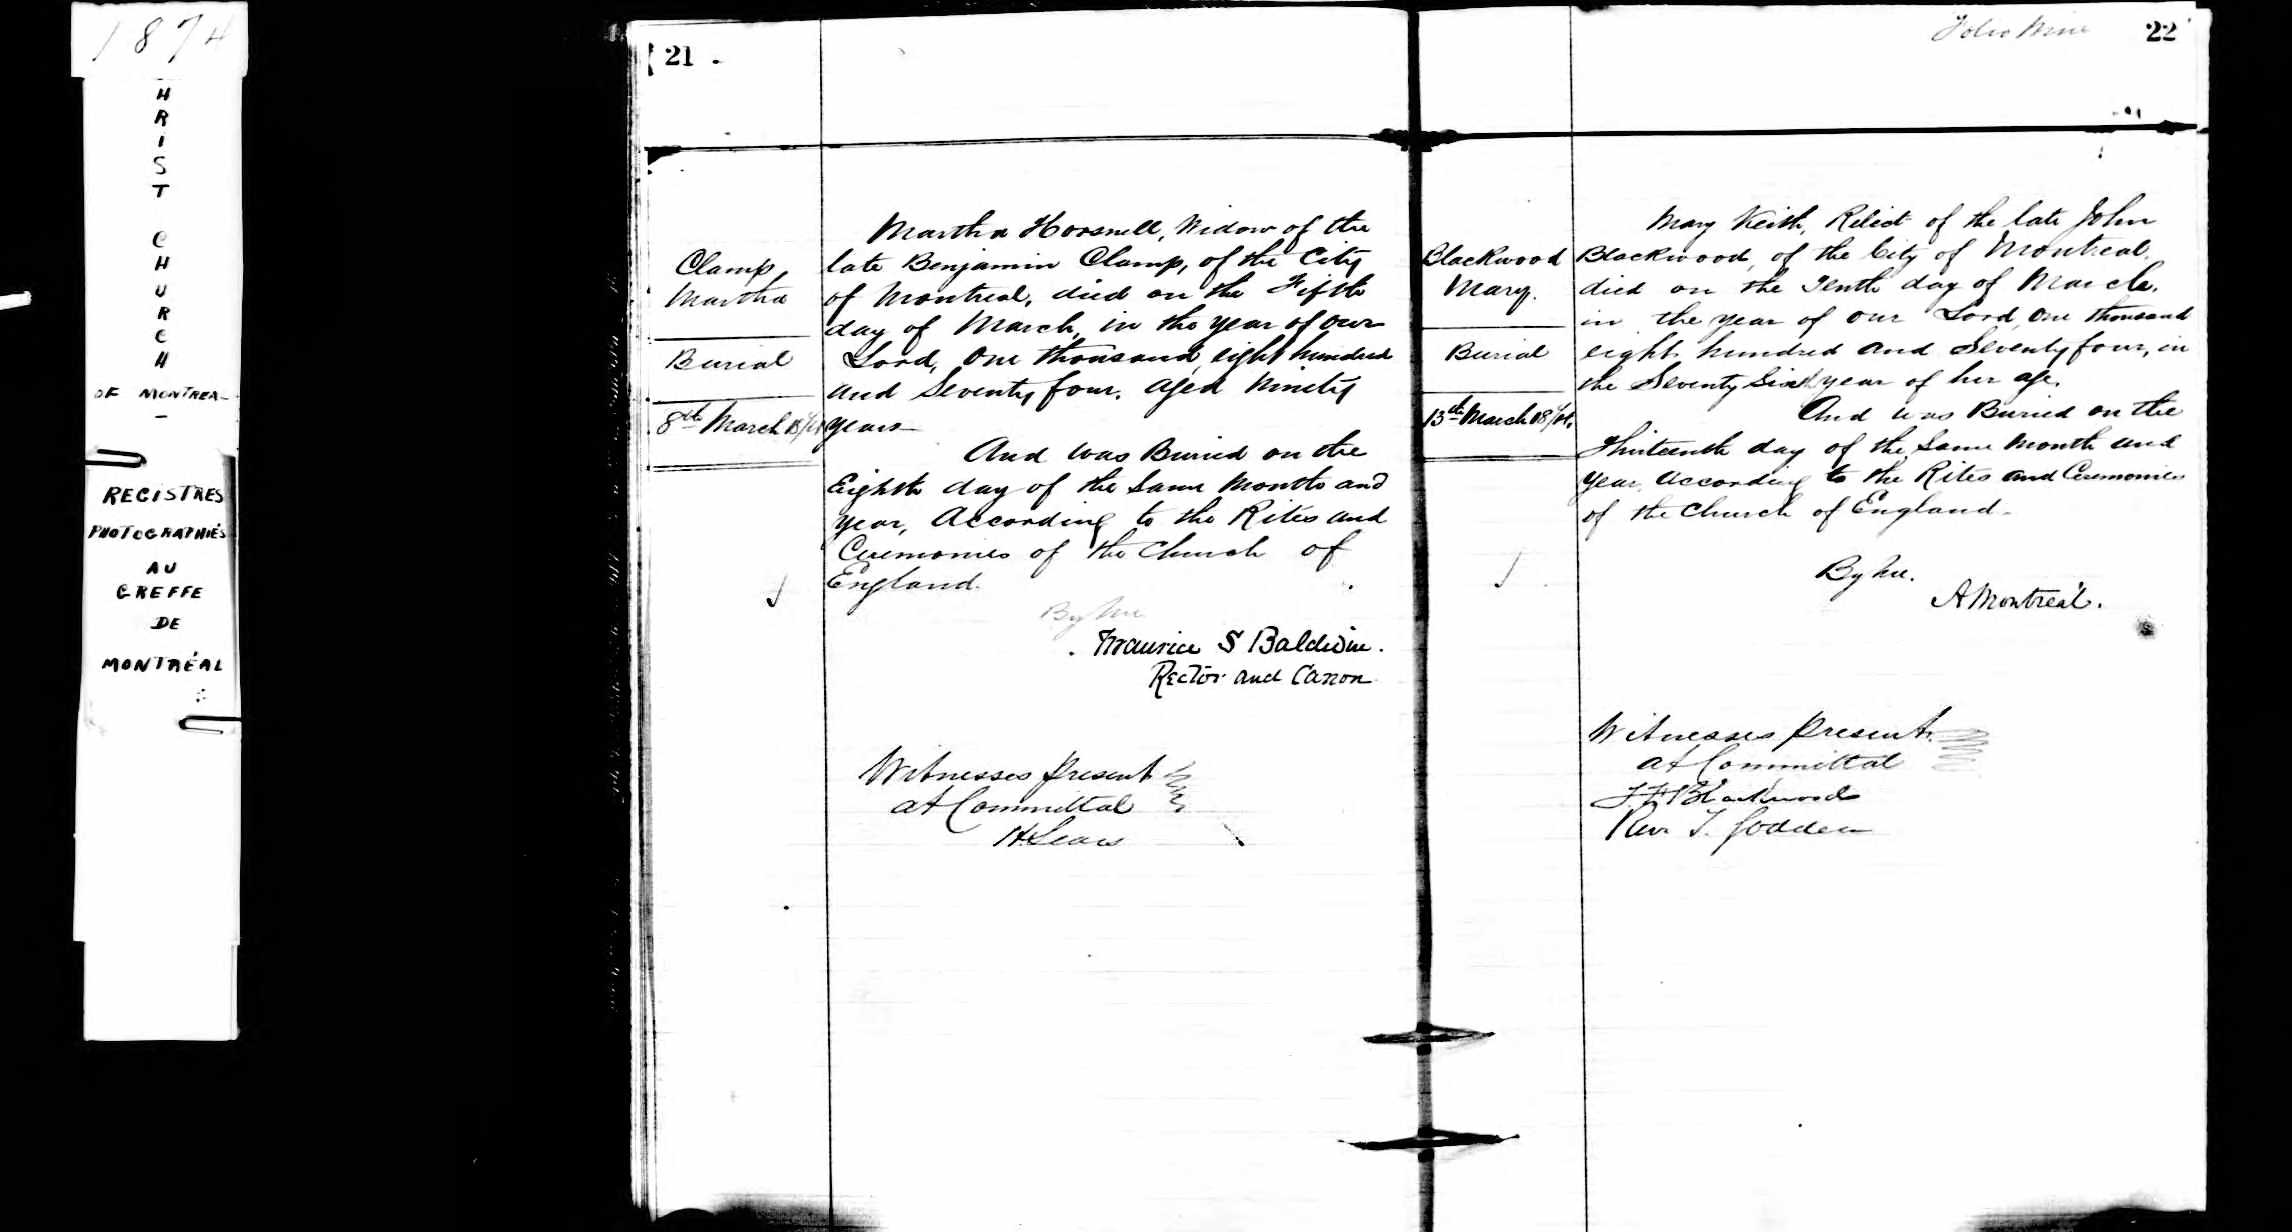 1874
HRIST
CHURCH
OF MONTREA
REGISTRES
PHOTOGRAPHIÉS
AU
GREFFE
DE
MONTRÉAL
21
Clamp,
Martha
Burial
8th March
Martha Hoosnell, Widow of the
late Benjamin Clamp, of the City
of Montreal, died on the Fifth
day of March, in the year of our
Lord, One thousand, eight hundred
and Seventy four. Aged Ninety
years
And was Buried on the
Eighth day of the Same Month and
year, According to the Rites and
Ceremonies of the Church of
England.
By me
Maurice S Baldwin.
Rector and Canon
Witnesses present
at Committal
22
Folio Nine
Blackwood
Mary.
Burial
13th March
Mary Keith, Relict of the late John
Blackwood, of the City of Montreal.
died on the Tenth day of March.
in the year of our Lord, One thousand
eight hundred and Seventy four, in
the Seventy Sixth year of her age.
And was Buried on the
Thirteenth day of the Same Month and
year, According to the Rites and Ceremonies
of the Church of England.
By me.
A Montreal.
Witnesses present
at Committal
Blackwood
Rev. J. Godden